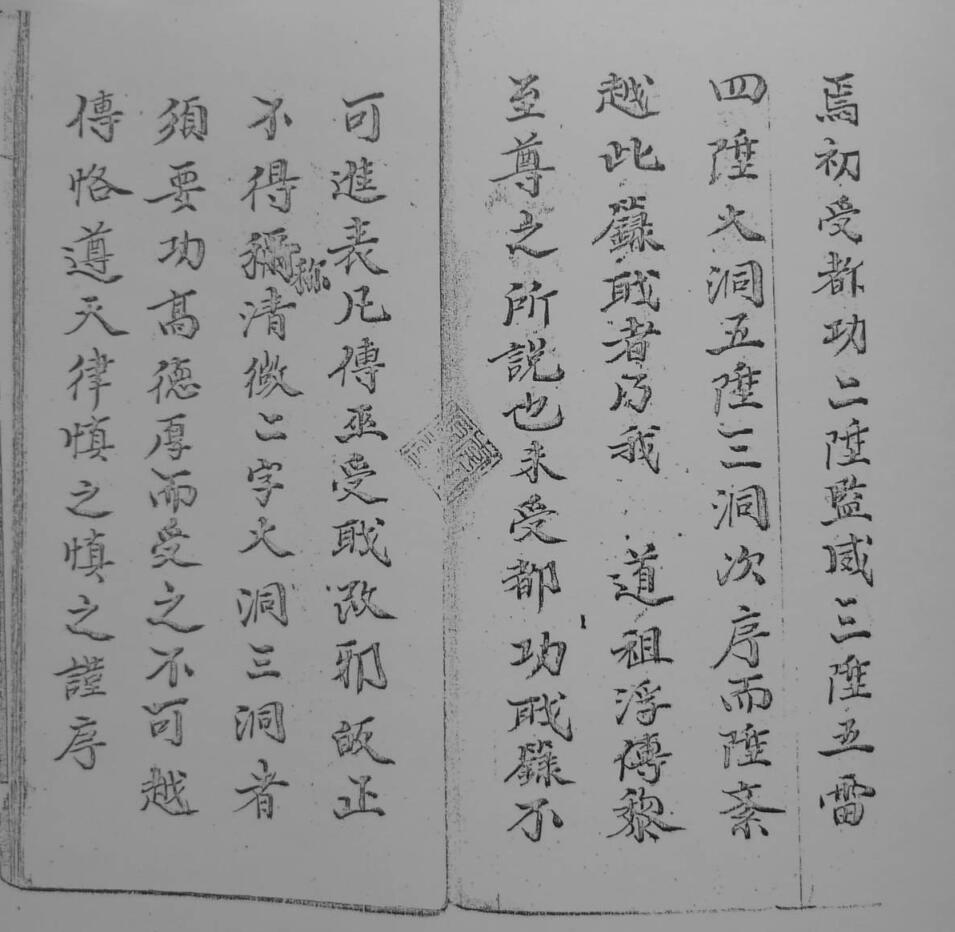 焉初受都功二陞監咸三陞五雷
四陞火洞五陞三洞次序而陞紊
越此籙職者乃我 道祖浮傳黎
至尊之所説也未受都功職籙不
可進表凡傳巫受職改邪皈正
不得獼称清微二字火洞三洞者
須要功高德厚而受之不可越
傳恪遵天律慎之慎之謹序